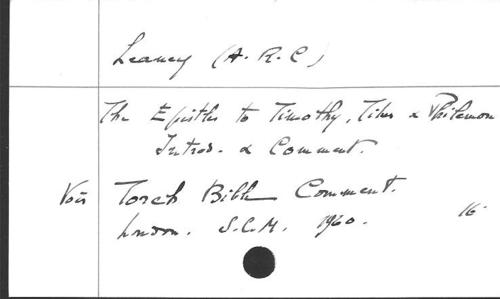 Leaney (A. R. C)
The Epistles to Timothy, Titus & Philemon
Introd. & Comment.
Voir Torch Bible Comment.
London. S.C.M. 1960. 16